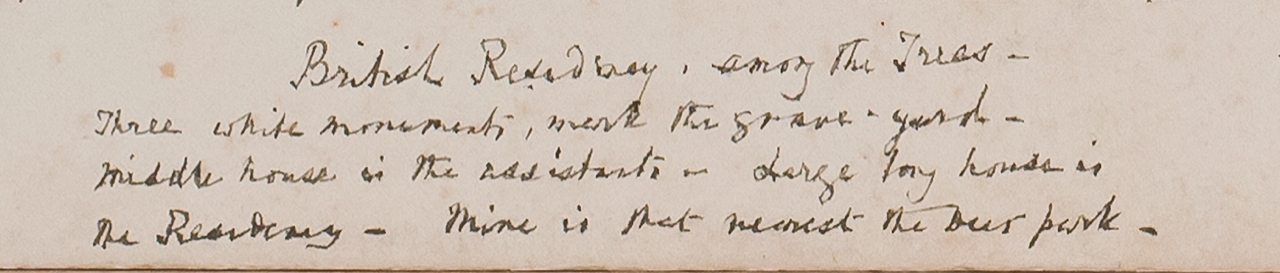 British Residency, among the Trees –
Three white monuments, mark the grave-yard –
Middle house is the assistants – Large long house is
the Residency – Mine is that nearest the Deer park –